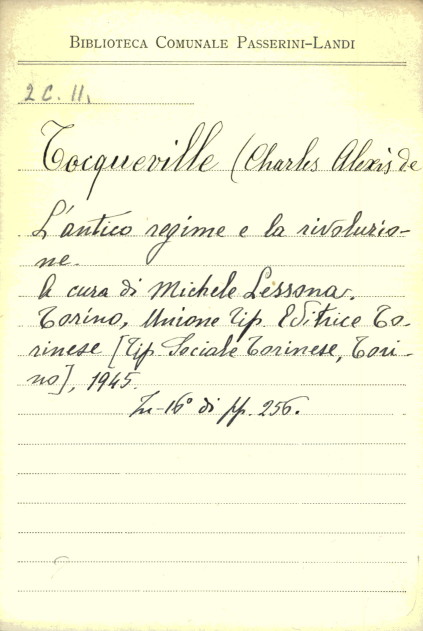 BIBLIOTECA COMUNALE PASSERINI-LANDI
2 C. 11.
Tocqueville (Charles Alexis de
L'antico regime e la rivoluzio-
ne.
A cura di Michele Lessona.
Torino, Unione Tip. Editrice To-
rinese [Tip. Sociale Torinese, Tori-
no], 1945.
In-16° di pp. 256.